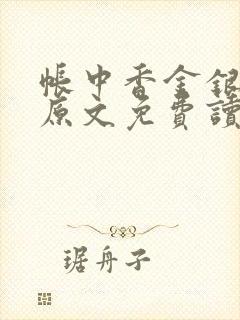 帳中香金銀
原文免費讀
琚舟子